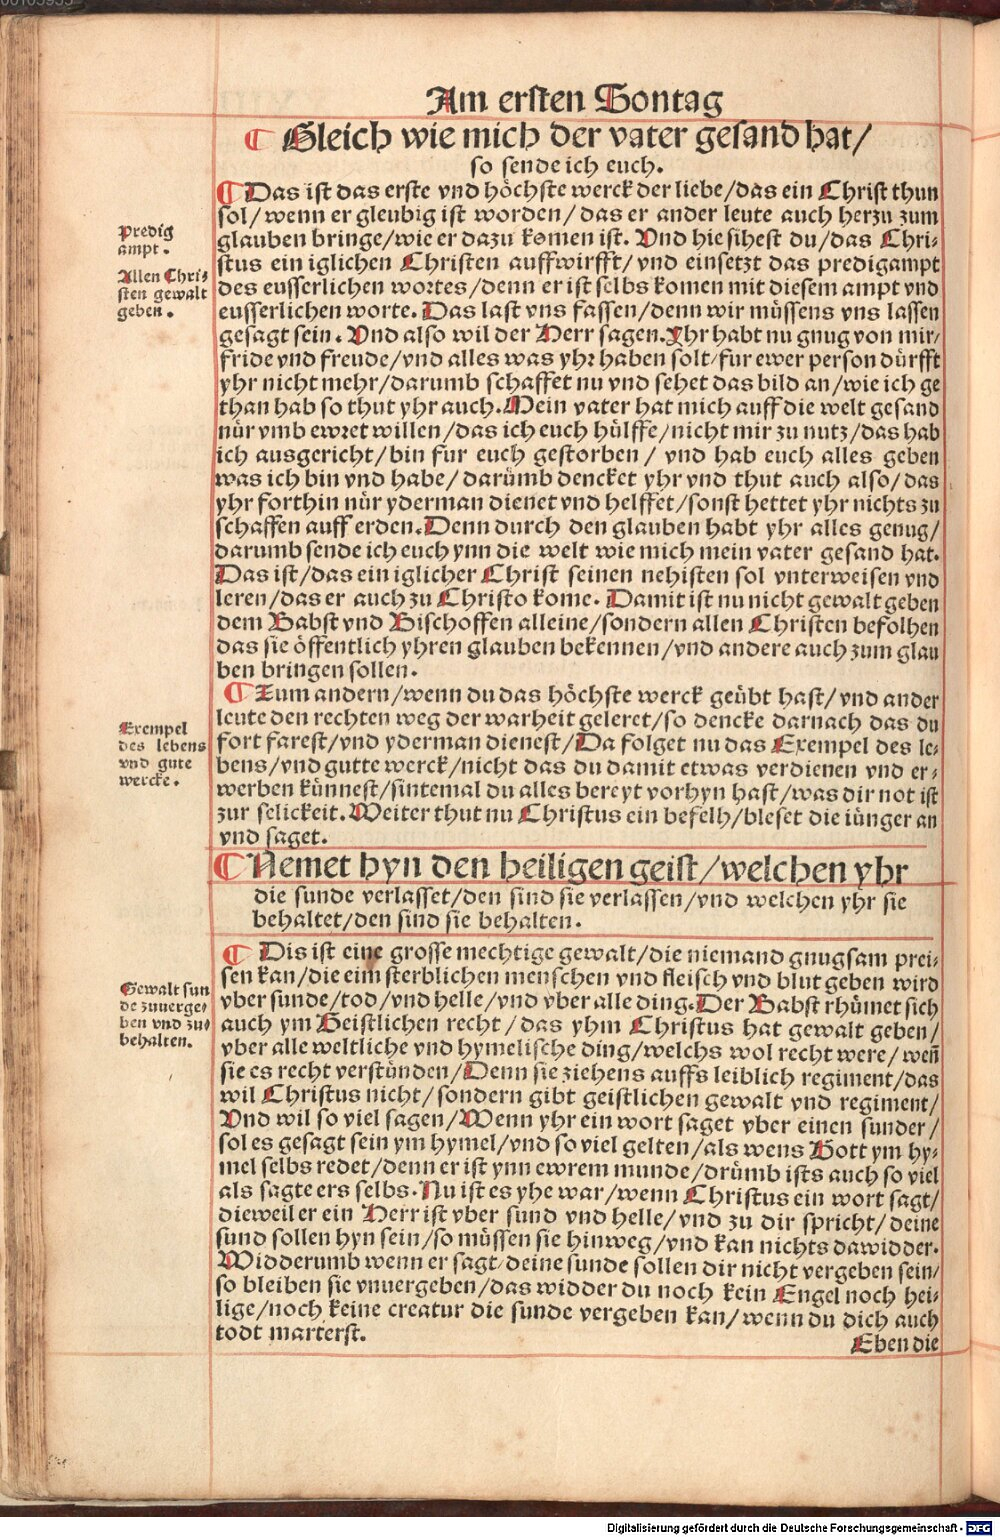 Am ersten Sontag
¶ Gleich wie mich der vater gesand hat/
so sende ich euch.
¶ Das ist das erste vnd höchste werck der liebe/das ein Christ thun
sol/wenn er gleubig ist worden/das er ander leute auch herzu zum
glauben bringe/wie er dazu komen ist. Vnd hie sihest du/das Chri-
stus ein iglichen Christen auffwirfft/vnd einsetzt das predigampt
des eusserlichen wortes/denn er ist selbs komen mit diesem ampt vnd
eusserlichen worte. Das last vns fassen/denn wir müssens vns lassen
gesagt sein. Vnd also wil der Herr sagen. Yhr habt nu gnug von mir/
fride vnd freude/vnd alles was yhr haben solt/fur ewer person dürfft
yhr nicht mehr/darumb schaffet nu vnd sehet das bild an/wie ich ge
than hab so thut yhr auch. Mein vater hat mich auff die welt gesand
nür vmb ewret willen/das ich euch hülffe/nicht mir zu nutz/das hab
ich ausgericht/bin fur euch gestorben/ vnd hab euch alles geben
was ich bin vnd habe/darümb dencket yhr vnd thut auch also/das
yhr forthin nür yderman dienet vnd helffet/sonst hettet yhr nichts zu
schaffen auff erden. Denn durch den glauben habt yhr alles genug/
darumb sende ich euch ynn die welt wie mich mein vater gesand hat.
Das ist/das ein iglicher Christ seinen nehisten sol vnterweisen vnd
leren/das er auch zu Christo kome. Damit ist nu nicht gewalt geben
dem Babst vnd Bischoffen alleine/sondern allen Christen befolhen
das sie öffentlich yhren glauben bekennen/vnd andere auch zum glau
ben bringen sollen.
¶ Zum andern/wenn du das höchste werck geübt hast/vnd ander
leute den rechten weg der warheit geleret/so dencke darnach das du
fort farest/vnd yderman dienest/Da folget nu das Exempel des le-
bens/vnd gutte werck/nicht das du damit etwas verdienen vnd er-
werben künnest/sintemal du alles bereyt vorhyn hast/was dir not ist
zur selickeit. Weiter thut nu Christus ein befelh/bleset die iünger an
vnd saget.
¶ Nemet hyn den heiligen geist/welchen yhr
die sunde verlasset/den sind sie verlassen/vnd welchen yhr sie
behaltet/den sind sie behalten.
¶ Dis ist eine grosse mechtige gewalt/die niemand gnugsam prei-
sen kan/die eim sterblichen menschen vnd fleisch vnd blut geben wird
vber sunde/tod/vnd helle/vnd vber alle ding. Der Babst rhümet sich
auch ym Geistlichen recht/das yhm Christus hat gewalt geben/
vber alle weltliche vnd hymelische ding/welchs wol recht were/weñ
sie es recht verstünden/Denn sie ziehens auffs leiblich regiment/das
wil Christus nicht/sondern gibt geistlichen gewalt vnd regiment/
Vnd wil so viel sagen/Wenn yhr ein wort saget vber einen sunder/
sol es gesagt sein ym hymel/vnd so viel gelten/als wens Gott ym hy-
mel selbs redet/denn er ist ynn ewrem munde/drümb ists auch so viel
als sagte ers selbs. Nu ist es yhe war/wenn Christus ein wort sagt/
dieweil er ein Herr ist vber sund vnd helle/vnd zu dir spricht/deine
sund sollen hyn sein/so müssen sie hinweg/vnd kan nichts dawidder.
Widderumb wenn er sagt/deine sunde sollen dir nicht vergeben sein/
so bleiben sie vnuergeben/das widder du noch kein Engel noch hei-
lige/noch keine creatur die sunde vergeben kan/wenn du dich auch
todt marterst.
Eben die
Predig
ampt.
Allen Chri-
sten gewalt
geben.
Exempel
des lebens
vnd gute
wercke.
Gewalt sun
de zuuerge-
ben vnd zu-
behalten.
Digitalisierung gefördert durch die Deutsche Forschungsgemeinschaft - DFG